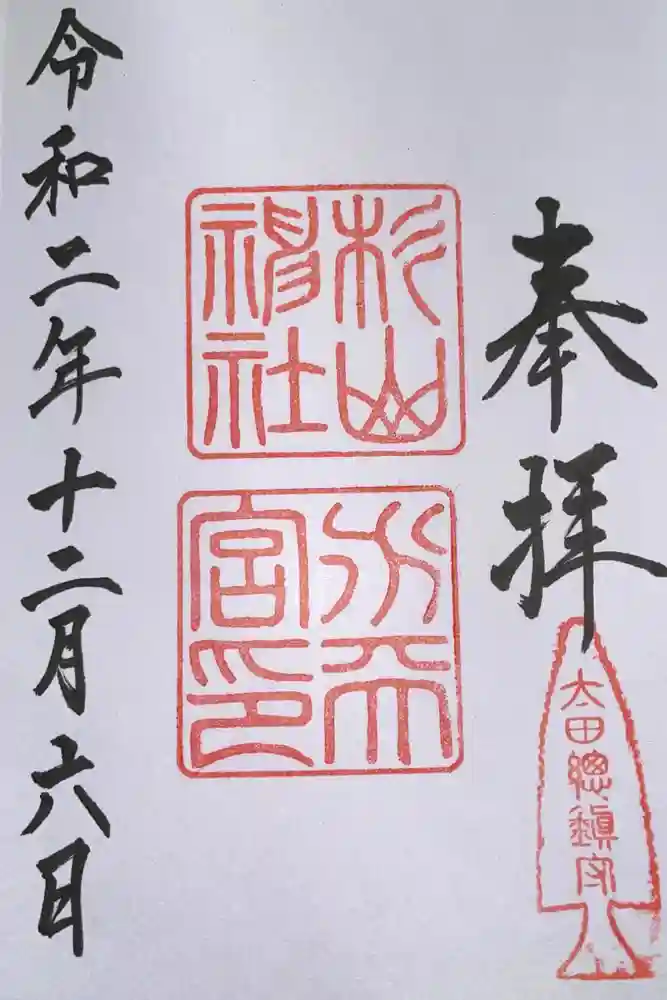 奉拝
太田總鎮守
杉山
神社
水天
宮印
令和二年十二月六日